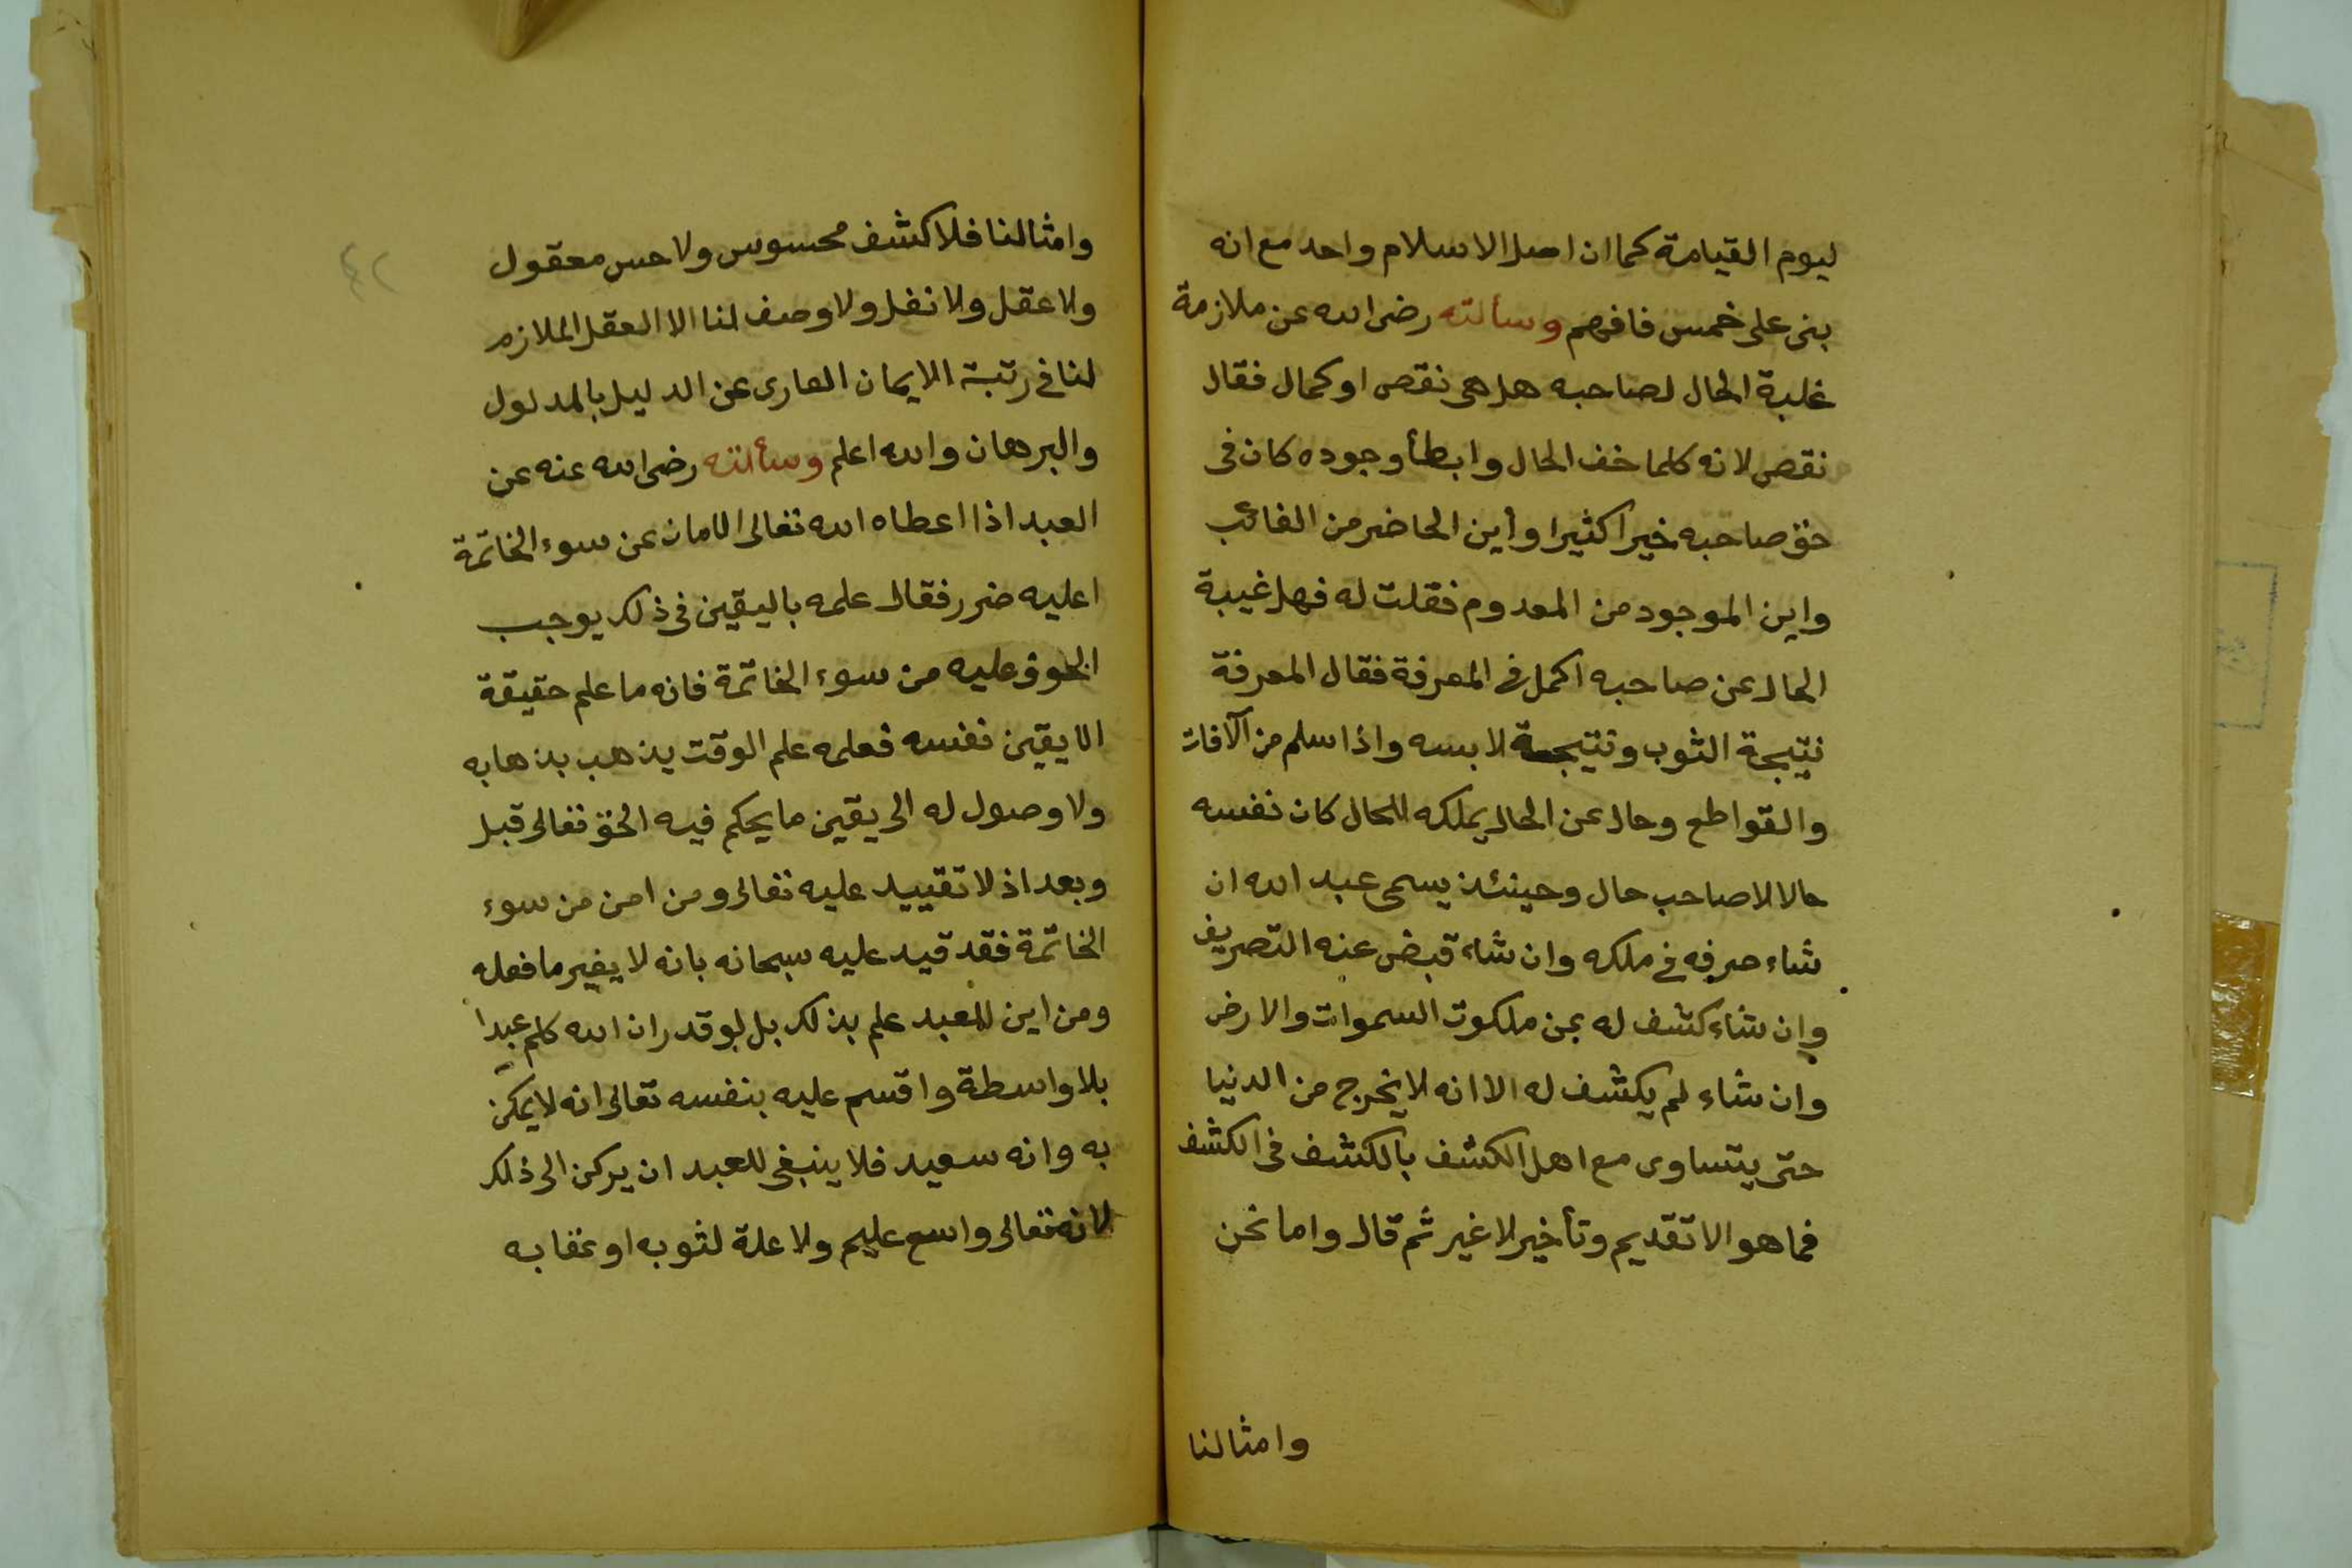 ليوم القيامة كما ان اصل الاسلام واحد مع انه
بنى على خمس فافهم وسألته رضى الله عن ملازمة
غلبة الحال لصاحبه هل هى نقص او كمال فقال
نقص لانه كلما خف الحال وابطأ وجوده كان فى
حق صاحبه خيرا كثيرا وأين الحاضر من الغائب
واين الموجود من المعدوم فقلت له فهل غيبة
الحال عن صاحبه اكمل فى المعرفة فقال المعرفة
نتيجة الثوب ونتيجة لابسه واذا سلم من الآفات
والقواطع وحال عن الحال يملكه للحال كان نفسه
حالا لا صاحب حال وحينئذ يسمى عبد الله ان
شاء صرفه فى ملكه وان شاء قبض عنه التصريف
وإن شاء كشف له عن ملكوت السموات والارض
وان شاء لم يكشف له الا انه لا يخرج من الدنيا
حتى يتساوى مع اهل الكشف بالكشف فى الكشف
فما هو الا تقديم وتأخير لا غير ثم قال واما نحن
وامثالنا
٤٢
وامثالنا فلا كشف محسوس ولا حس معقول
ولا عقل ولا نقل ولا وصف لنا الا العقل الملازم
لنا فى رتبة الايمان العارى عن الدليل بالمدلول
والبرهان والله اعلم وسألته رضى الله عنه عن
العبد اذا اعطاه الله تعالى الامان عن سوء الخاتمة
اعليه ضرر فقال علمه باليقين فى ذلك يوجب
الخوف عليه من سوء الخاتمة فانه ما علم حقيقة
الا يقين نفسه فعلمه علم الوقت يذهب بذهابه
ولا وصول له الى يقين ما يحكم فيه الحق تعالى قبل
وبعد اذ لا تقييد عليه تعالى ومن امن من سوء
الخاتمة فقد قيد عليه سبحانه بانه لا يغير ما فعله
ومن اين للعبد علم بذلك بل لو قدر ان الله كلم عبدا
بلا واسطة واقسم عليه بنفسه تعالى انه لا يمكن
به وانه سعيد فلا ينبغى للعبد ان يركن الى ذلك
لانه تعالى واسع عليم ولا علة لثوبه او عقابه